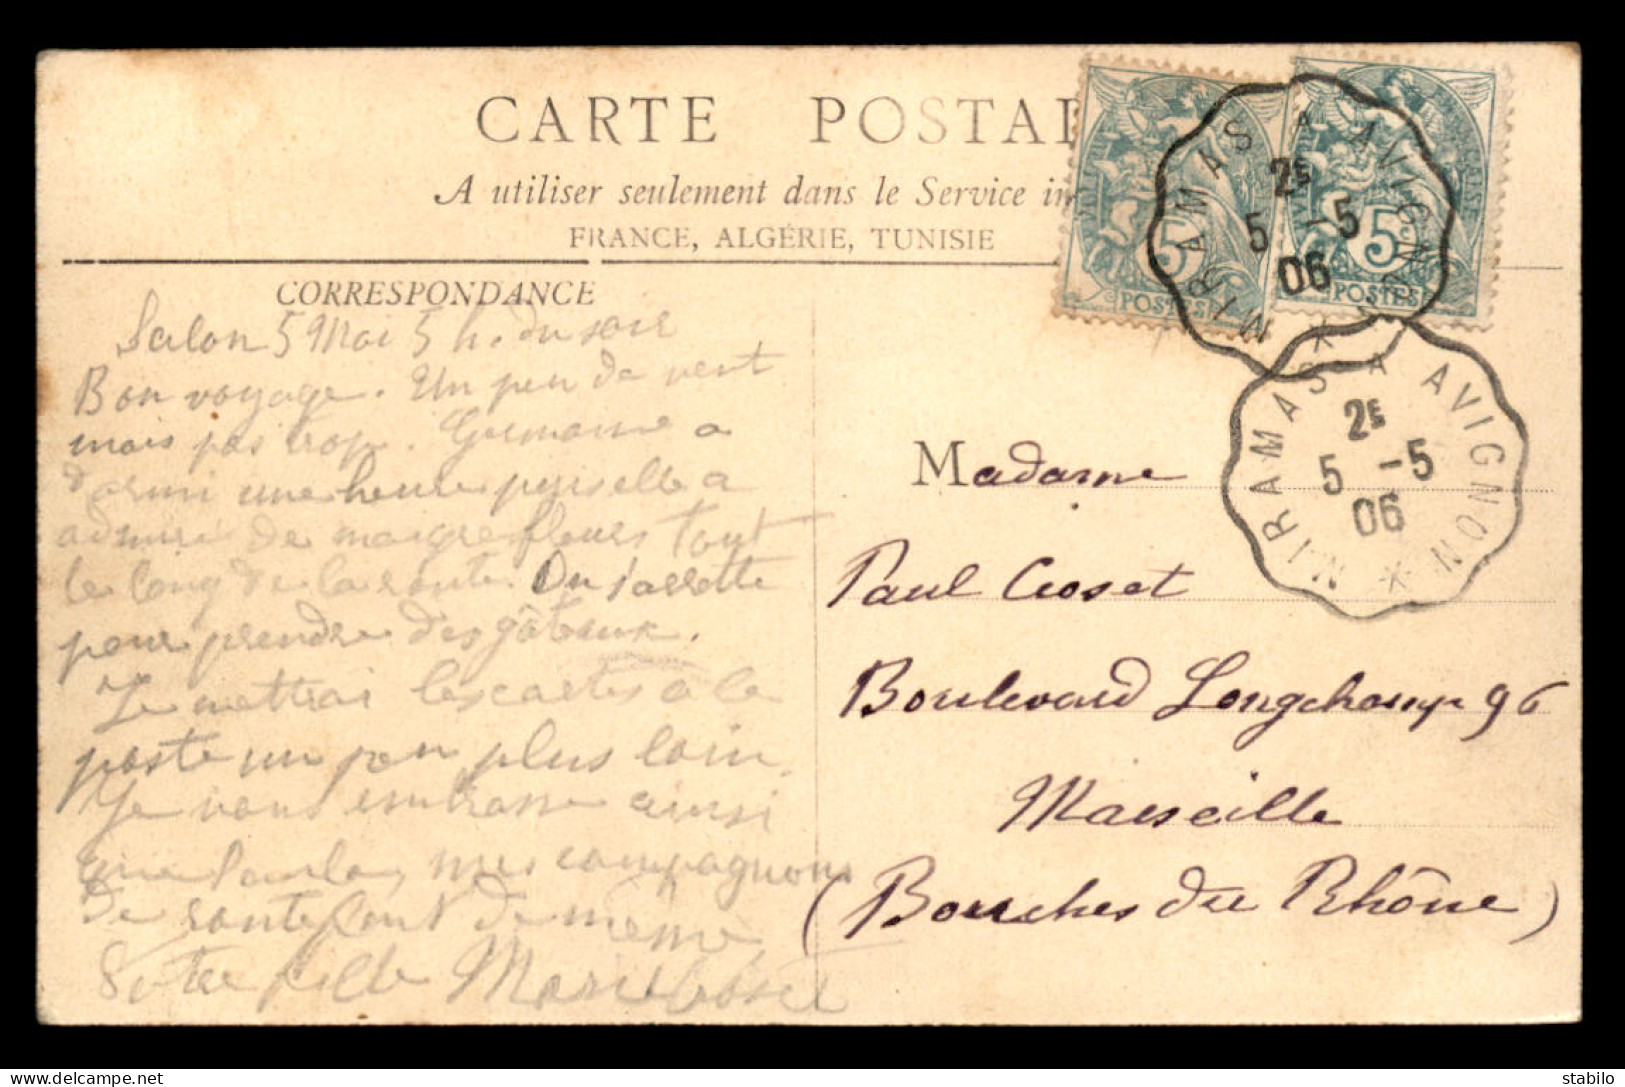 CARTE POSTAL
A utiliser seulement dans le Service in
FRANCE, ALGÉRIE, TUNISIE
CORRESPONDANCE
Salon 5 Mai 5 h. du soir
Bon voyage. Un peu de vent
mais pas trop. Germaine a
dormi une heure puis elle a
admiré de maigre fleurs tout
le long de la route. On s'arrette
pour prendre des gâteaux.
Je mettrai les cartes à la
poste un peu plus loin.
Je vous embrasse ainsi
que mes compagnons
de route font de même,
Votre fille Marie
Madame
Paul Croset
Boulevard Longchamp 96
Marseille
(Bouches du Rhône)
5
POSTES
5
POSTES
MIRAMAS A AVIGNON
2E
5 -5
06
MIRAMAS A AVIGNON
2E
5 -5
06
stabilo67
delcampe.net